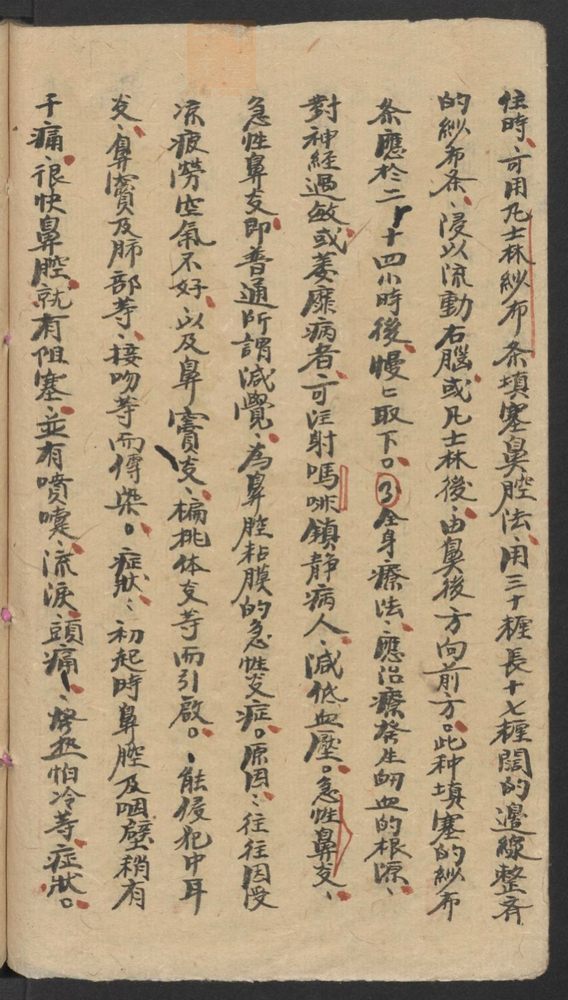 住時、可用凡士林紗布条填塞鼻腔法、用三十糎長十七糎闊的邊線整齐
的紗布条、浸以流動石腦或凡士林後、由鼻後方向前方。此种填塞的紗布
条應於二十四小時後、慢〻取下。③全身療法、應治療發生衂血的根源、
對神経過敏或萎靡病者、可注射嗎啡鎮静病人、减低血壓。急性鼻炎、
急性鼻炎即普通所謂减覺、為鼻腔粘膜的急性炎症。原因：往往因受
凉疲勞空氣不好、以及鼻竇炎、槅桃体炎等而引啟。、能侵犯中耳
炎、鼻竇及肺部等、接吻等而傳染。症狀：初起時鼻腔及咽壁稍有
干痛、很快鼻腔就有阻塞、並有噴嚏、流淚、頭痛、熱怕冷等症狀。